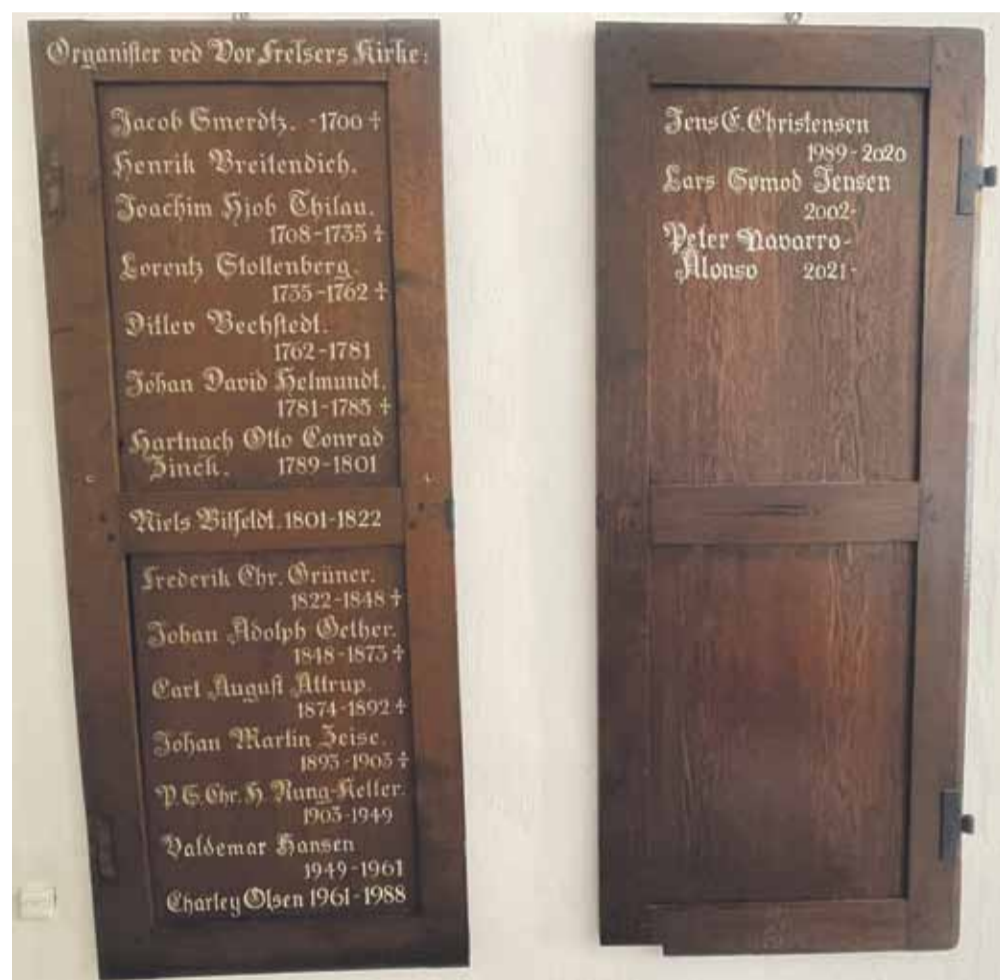 Organister ved Vor Frelsers Kirke:
Jacob Smerdtz. -1700 †
Henrik Breitendich.
Joachim Hjob Thilau.
1708-1735 †
Lorentz Stoltenberg.
1735-1762 †
Ditlev Bechstedt.
1762-1781
Johan David Helmundt.
1781-1785 †
Hartnach Otto Conrad
Zinck. 1789-1801
Niels Bitfeldt. 1801-1822
Frederik Chr. Grüner.
1822-1848 †
Johan Adolph Gether.
1848-1873 †
Carl August Attrup.
1874-1892 †
Johan Martin Zeise.
1893-1903 †
P. S. Chr. H. Rung-Keller.
1903-1949
Valdemar Hansen
1949-1961
Charley Olsen 1961-1988
Jens E. Christensen
1989-2020
Lars Sømod Jensen
2002-
Peter Navarro-
Alonso 2021-